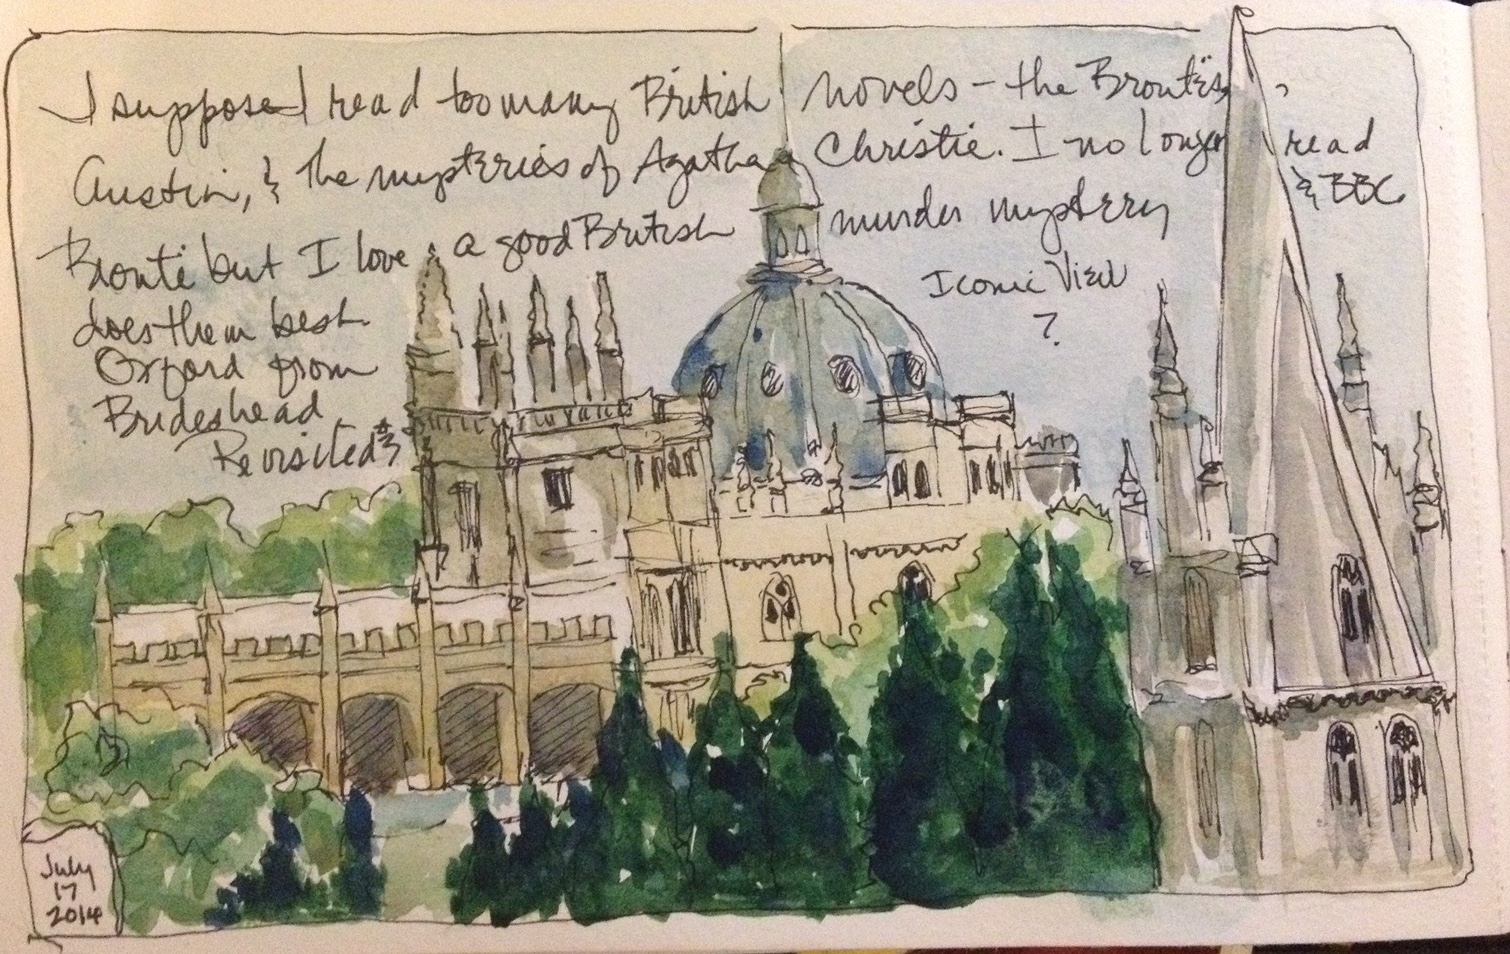 I suppose I read too many British novels - the Brontës,
Austin, & the mysteries of Agatha Christie. I no longer read
Bronté but I love a good British murder mystery & BBC
does them best
Oxford from
Brideshead
Revisited
Iconic View
?
July
17
2014